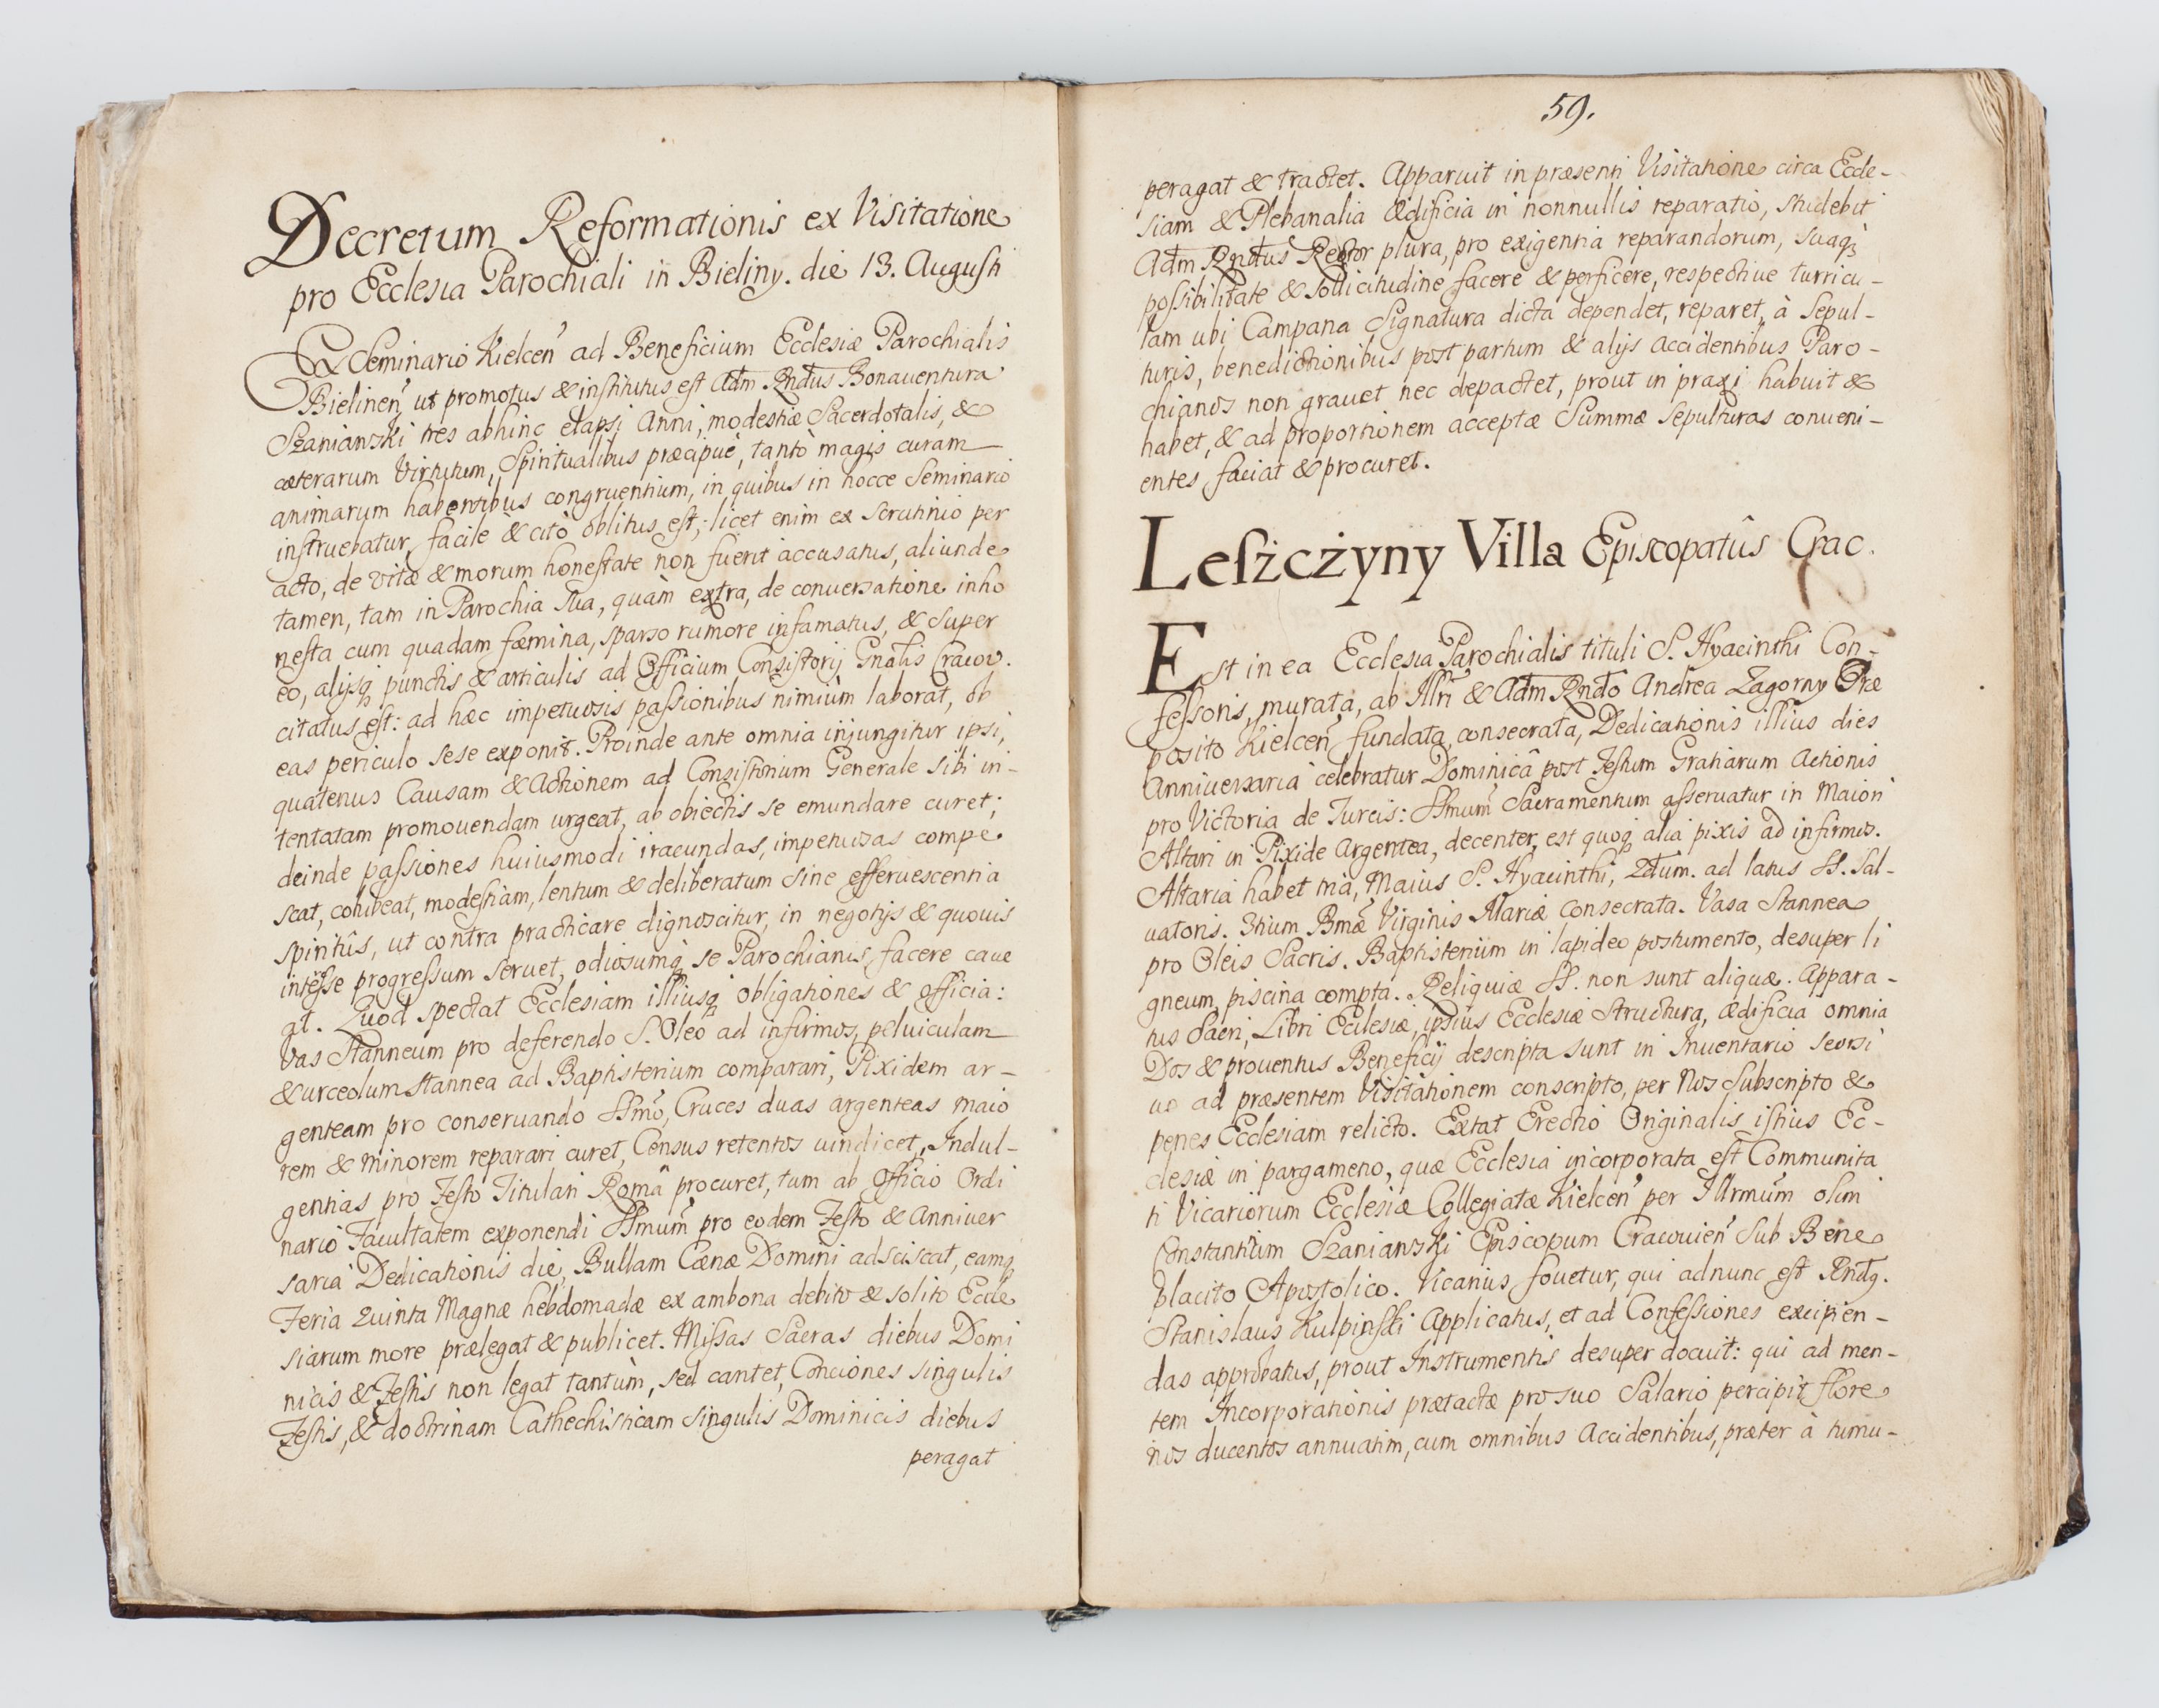 Decretum Reformationis ex Visitatione
pro Ecclesia Parochiali in Bieliny. die 13. Augusti
Ex Seminario Kielcen̄ ad Beneficium Ecclesiæ Parochialis
Bielinen̄, ut promotus & institutus est Adm Rndus Bonauentura
Szaniawski tres abhinc elapsi Anni, modestiæ Sacerdotalis, &
cæterarum Virtutum, Spiritualibus præcipuè, tantò magis curam
animarum habentibus congruentium, in quibus in hocce Seminario
instruebatur, facilè & citò oblitus est; licet enim ex Scrutinio per
acto, de vitæ & morum honestate non fuerit accusatus, aliunde
tamen, tam in Parochia sua, quàm extra, de conuersatione inho
nesta cum quadam fæmina, sparso rumore infamatus, & super
eo, alijsq́ punctis & articulis ad Officium Consistorij Gnalis Cracov.
citatus est: ad hæc impetuosis passionibus nimiùm laborat, ob
eas periculo sese exponit. Proinde ante omnia injungitur ipsi,
quatenus Causam & Actionem ad Consistorium Generale sibi in-
tentatam promouendam urgeat, ab obiectis se emundare curet;
deinde passiones huiusmodi iracundas, impetuosas compe
scat, cohibeat, modestiam, lentum & deliberatum sine efferuescentia
spiritûs, ut contra practicare dignoscitur, in negotijs & quouis
intesse progressum seruet, odiosumq́ se Parochianis facere caue
at. Quod spectat Ecclesiam illiusq́ obligationes & officia:
Vas Stanneum pro deferendo S. Oleo ad infirmos, peluiculam
& urceolum stannea ad Baptisterium comparari, Pixidem ar-
genteam pro conseruando SSmo, Cruces duas argenteas maio
rem & minorem reparari curet, Census retentos vindicet, Indul-
gentias pro Festo Titulari Româ procuret, tum ab Officio Ordi
nario Facultatem exponendi SSmum pro eodem Festo & Anniver
saria Dedicationis die, Bullam Cænæ Domini adsciscat, eamq́
Feria Quinta Magnæ hebdomadæ ex ambona debito & solito Eccle
siarum more prælegat & publicet. Missas Sacras diebus Domi
nicis & Festis non legat tantùm, sed cantet, Conciones singulis
Festis, & doctrinam Cathechisticam singulis Dominicis diebus
peragat
59.
peragat & tractet. Apparuit in præsenti Visitatione circa Eccle-
siam & Plebanalia Ædificia in nonnullis reparatio, studebit
Adm Rndus Rector plura, pro exigentia reparandorum, suaq́
possibilitate & sollicitudine facere & perficere, respectiue turricu-
lam ubi Campana Signatura dicta dependet, reparet, à Sepul-
turis, benedictionibus post partum & alijs accidentibus Paro-
chianos non grauet nec depactet, prout in praxi habuit &
habet, & ad proportionem acceptæ Summæ Sepulturas conueni-
entes faciat & procuret.
Lesżcżyny Villa Episcopatûs Crac.
Est in ea Ecclesia Parochialis tituli S. Hyacinthi Con-
fessoris, murata, ab Illri & Adm Rndo Andrea Zagorny Præ
posito Kielcen̄ fundata, consecrata, Dedicationis illius dies
Anniuersaria celebratur Dominicâ post Festum Gratiarum Actionis
pro Victoria de Turcis: SSmum Sacramentum asseruatur in Maiori
Altari in Pixide Argentea, decenter, est quoq́ alia pixis ad infirmos.
Altaria habet tria, Maius S. Hyacinthi, 2dum. ad latus SS. Sal-
uatoris. 3tium Bmæ Virginis Mariæ consecrata. Vasa Stannea
pro Oleis Sacris. Baptisterium in lapideo postumento, desuper li
gneum, piscina compta. Reliquiæ SS. non sunt aliquæ. Appara-
tus Sacri, Libri Ecclesiæ, ipsius Ecclesiæ Structura, Ædificia omnia
Dos & prouentus Beneficij descripta sunt in Inuentario seorsi
uo ad præsentem Visitationem conscripto, per Nos Subscripto &
penes Ecclesiam relicto. Extat Erectio Originalis istius Ec-
clesiæ in pargameno, quæ Ecclesia incorporata est Communita
ti Vicariorum Ecclesiæ Collegiatæ Kielcen̄ per Illrmum olim
Constantium Szaniawski Episcopum Cracouien̄ Sub Bene
placito Apostolico. Vicarius fouetur, qui adnunc est Rndq.
Stanislaus Kulpinski Applicatus, et ad Confessiones excipien-
das approbatus, prout Instrumentis desuper docuit: qui ad men-
tem Incorporationis prætactæ pro suo Salario percipit flore
nos ducentos annuatim, cum omnibus Accidentibus, præter à tumu-